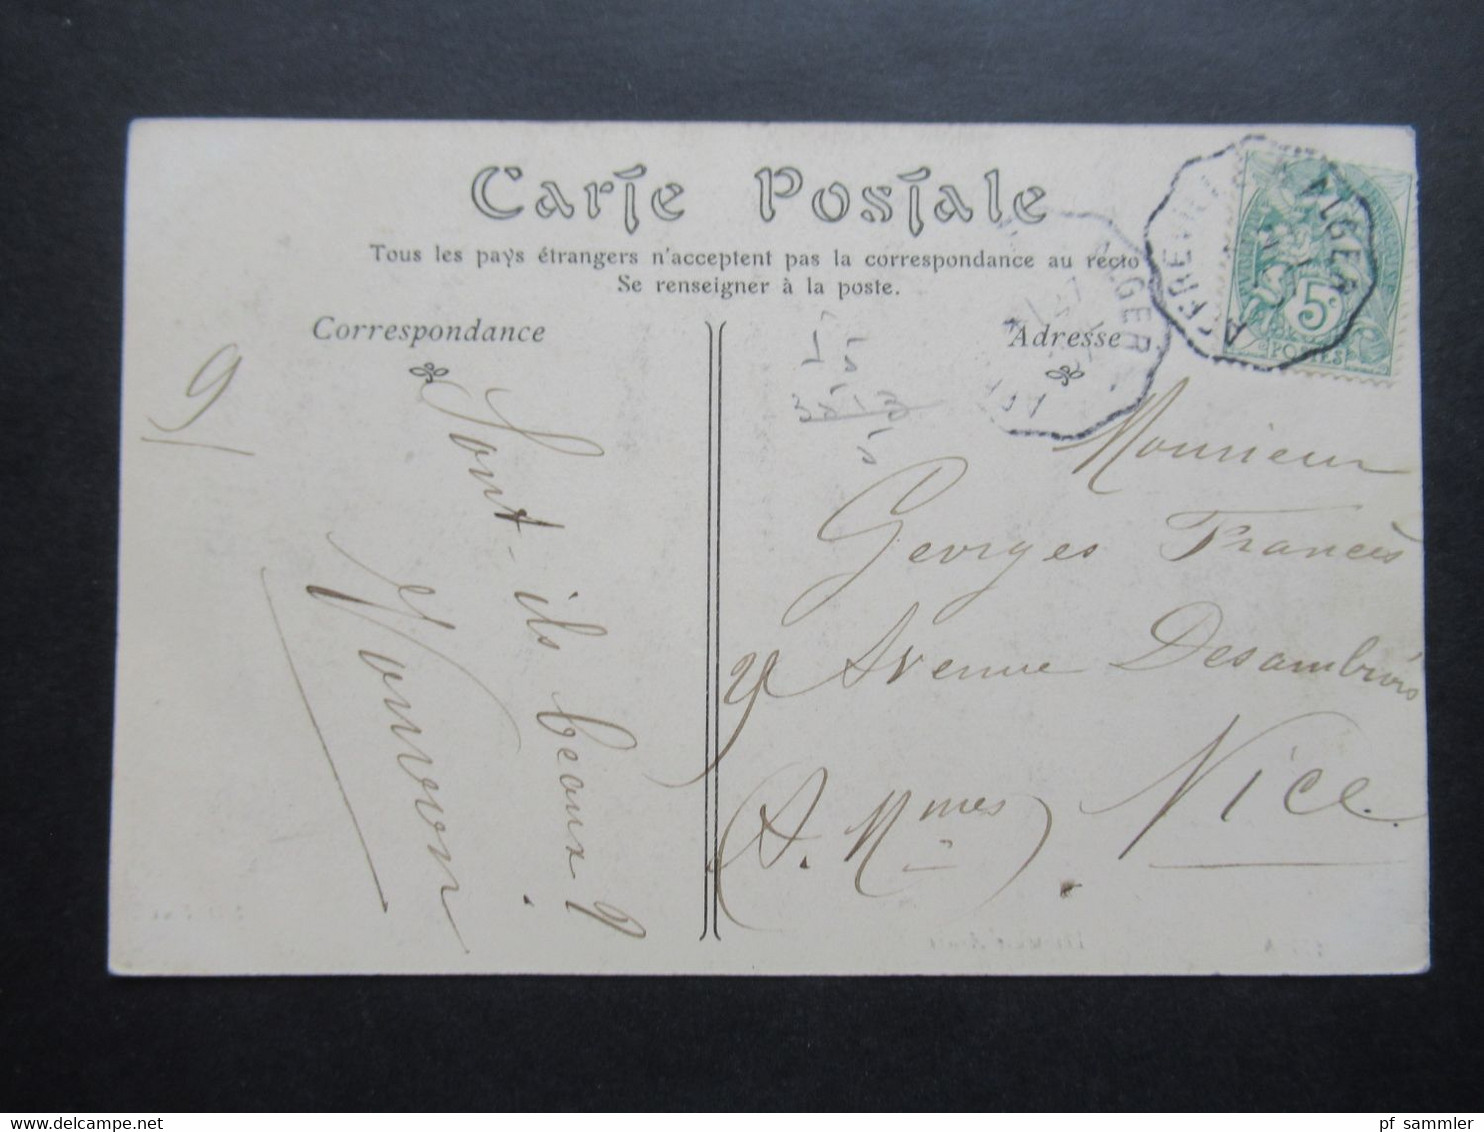 Carte Postale
Tous les pays étrangers n'acceptent pas la correspondance au recto
Se renseigner à la poste.
Correspondance
Adresse
Sont-ils beaux?
Monsieur
Georges Francès
9 Avenue Desambrois
Nice
(A. Mmes)
ALGER
5c
POSTES
ALGER
delcampe.net
pf_sammler